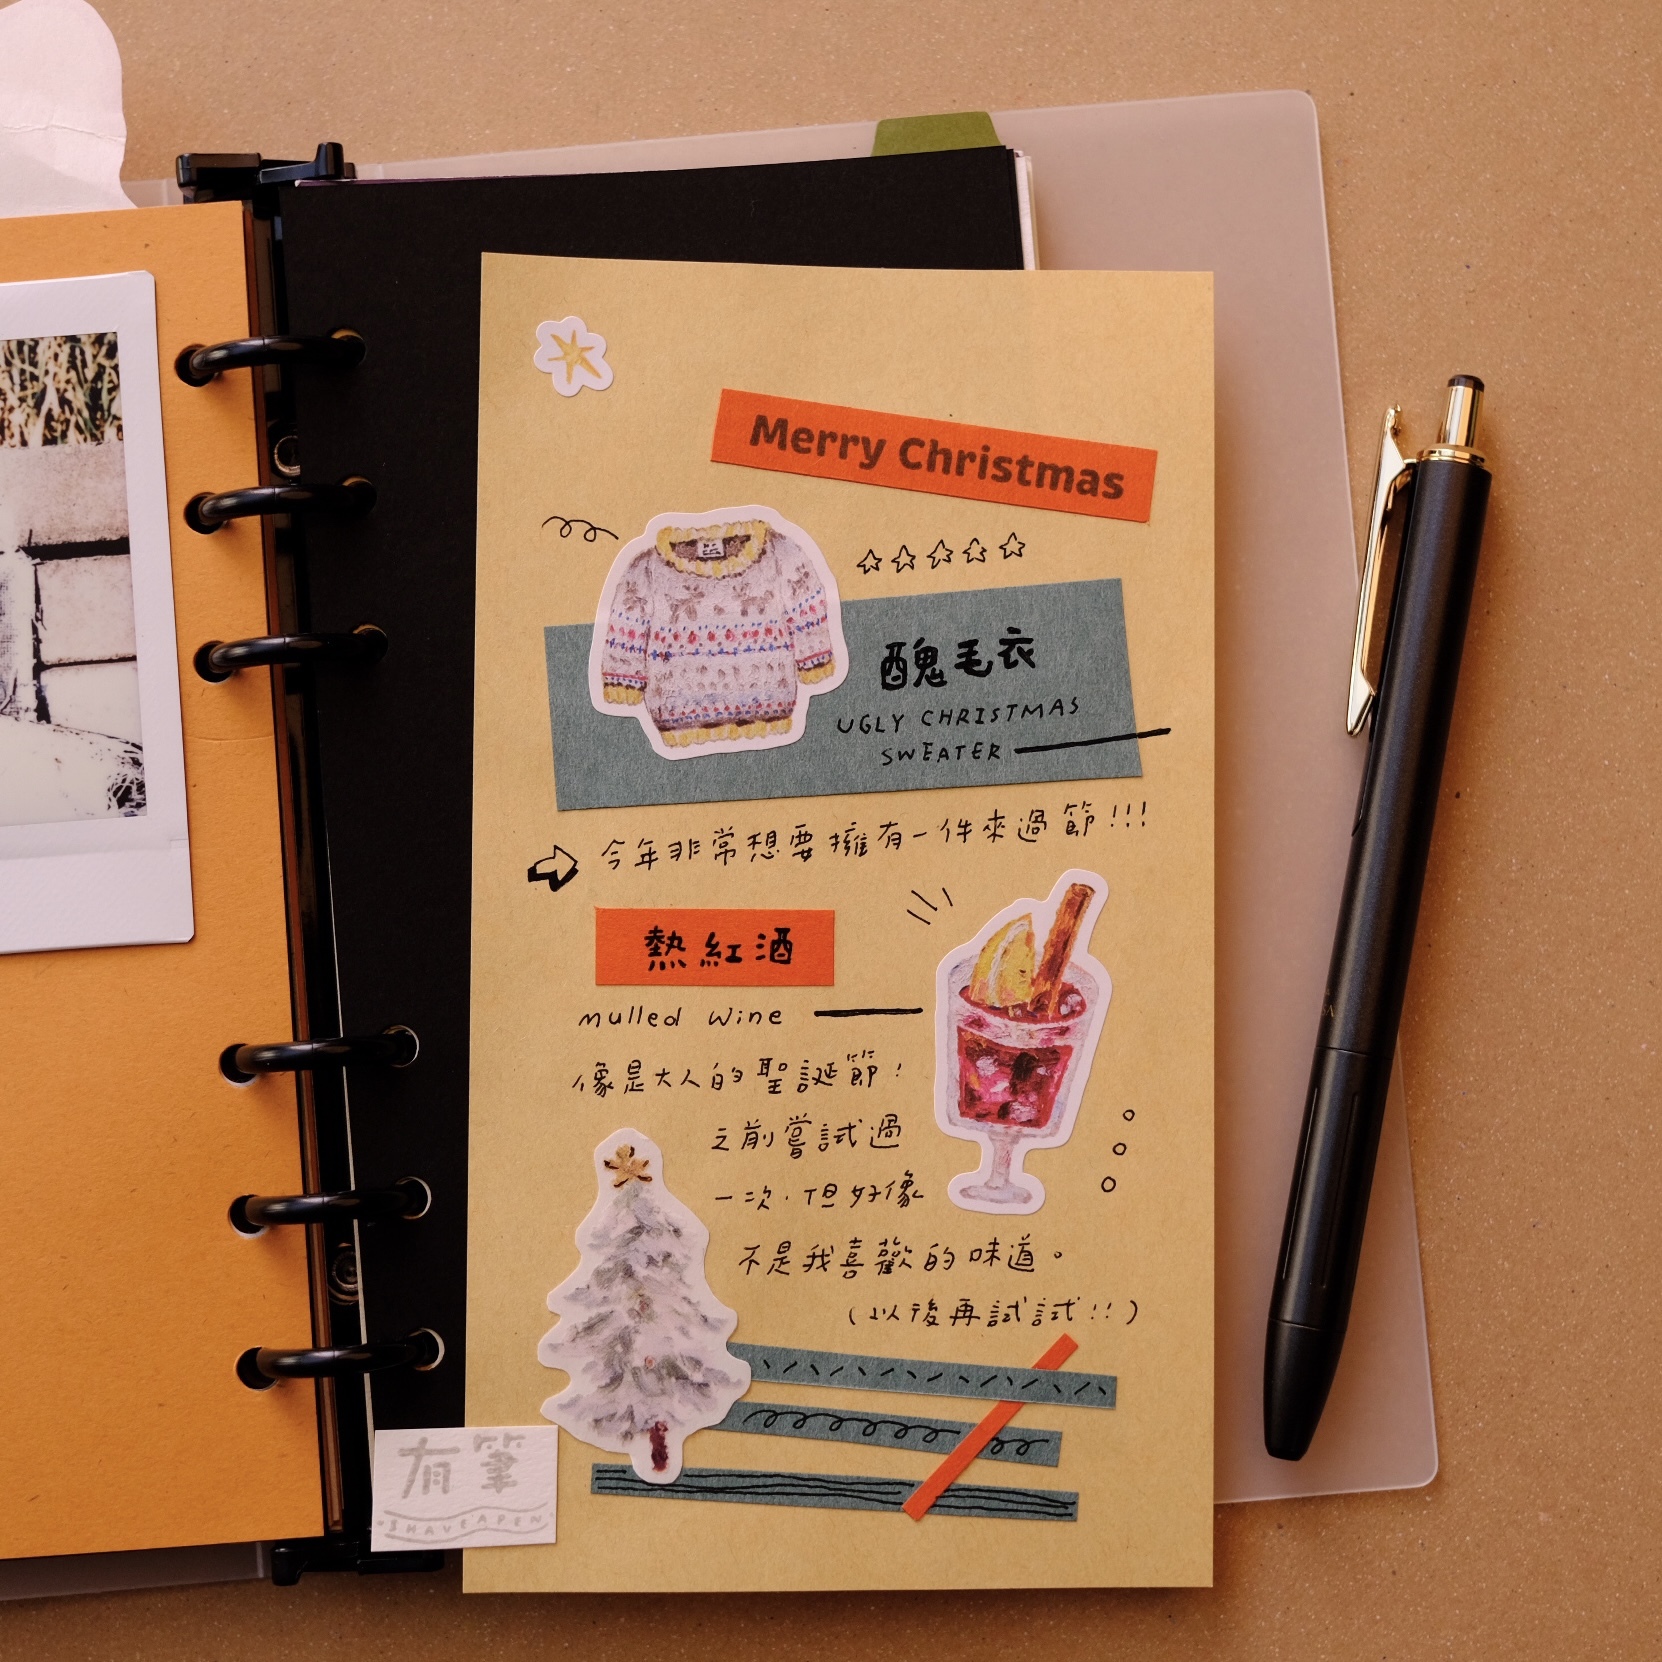 Merry Christmas
醜毛衣
UGLY CHRISTMAS
SWEATER
今年非常想要擁有一件來過節!!!
熱紅酒
mulled wine
像是大人的聖誕節!
之前嘗試過
一次,但好像
不是我喜歡的味道。
(以後再試試!!)
有筆
IHAVEAPEN